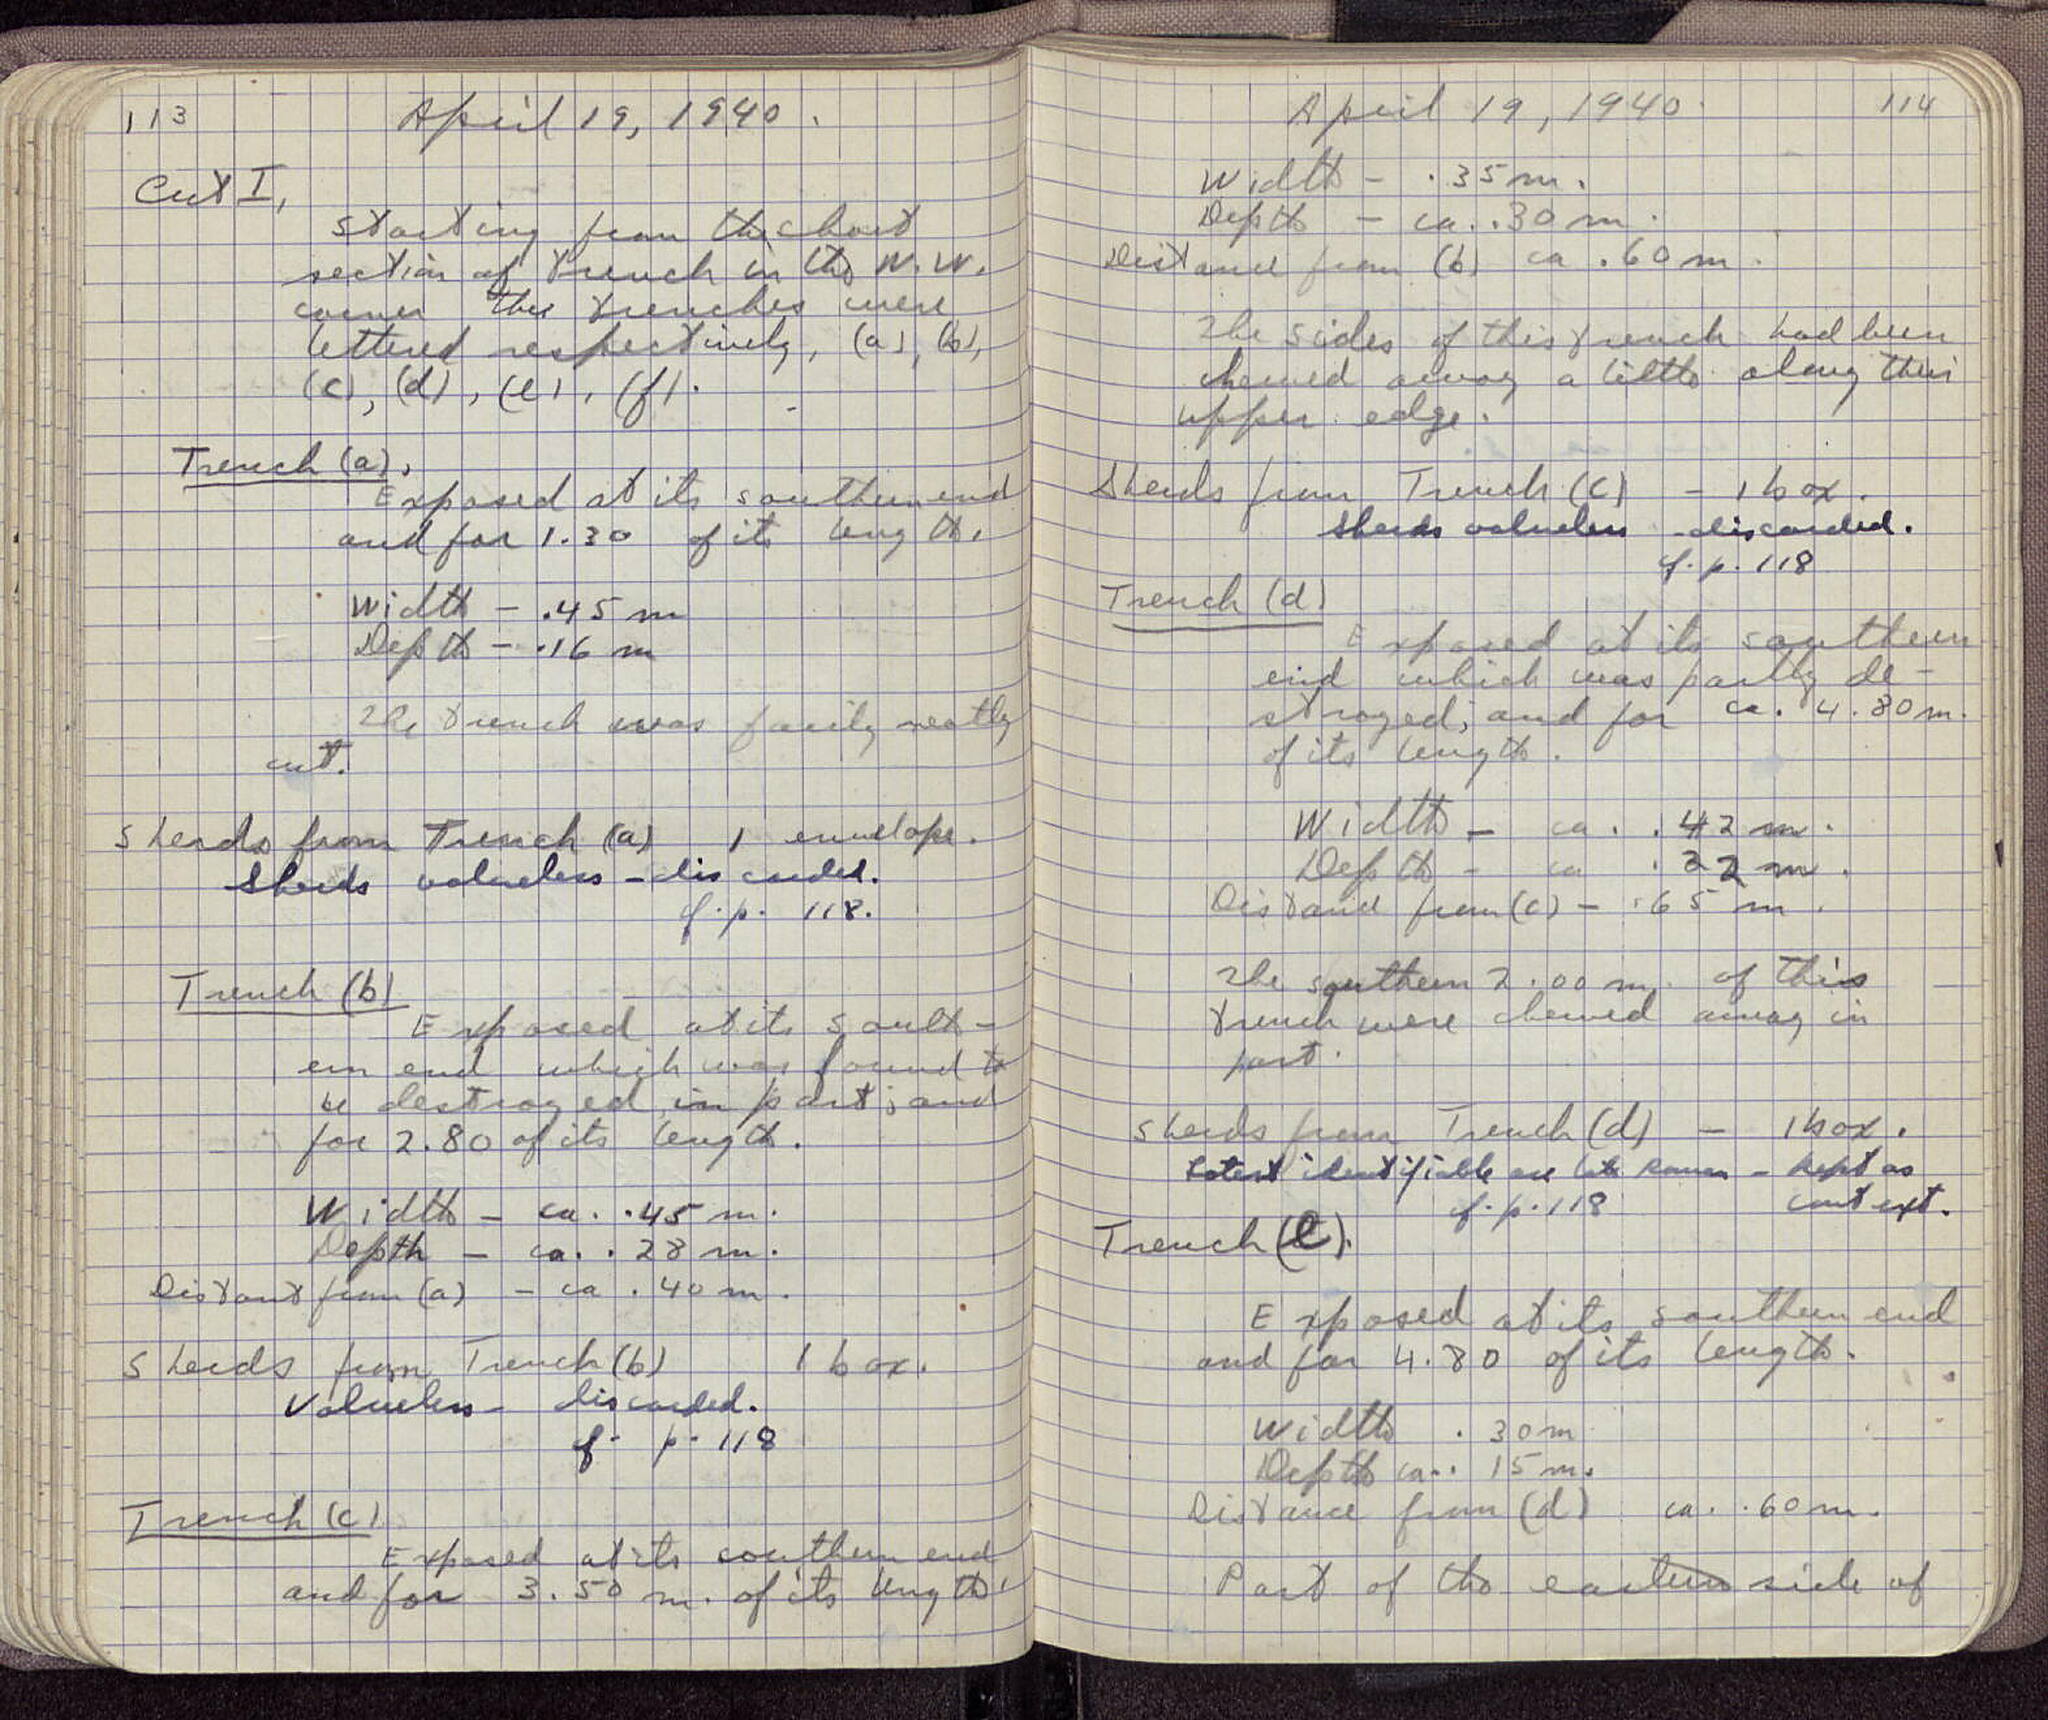 113
April 19, 1940.
Cut I,
starting from the short
section of trench in the N.W.
corner the trenches were
lettered respectively, (a), (b),
(c), (d), (e), (f).
Trench (a).
Exposed at its southern end
and for 1.30 of its length.
Width - .45 m
Depth - .16 m
The trench was fairly neatly
cut.
Sherds from Trench (a) 1 envelope.
Sherds valueless - discarded.
cf. p. 118.
Trench (b)
Exposed at its south-
ern end which was found to
be destroyed in part; and
for 2.80 of its length.
Width - ca. .45 m.
Depth - ca. .28 m.
Distant from (a) - ca .40 m.
Sherds from Trench (b) 1 box.
Valueless - discarded.
cf. p. 118
Trench (c)
Exposed at its southern end
and for 3.50 m. of its length.
April 19, 1940.
114
Width - .35 m.
Depth - ca. .30 m.
Distance from (b) ca .60 m.
The sides of this trench had been
chewed away a little along their
upper edge.
Sherds from Trench (c) - 1 box.
Sherds valueless - discarded.
cf. p. 118
Trench (d)
Exposed at its southern
end which was partly de-
stroyed; and for ca. 4.80 m.
of its length.
Width - ca. .42 m.
Depth - ca .22 m.
Distance from (c) - .65 m.
The southern 2.00 m. of this
trench were chewed away in
part.
Sherds from Trench (d) - 1 box.
Latest identifiable are late Roman - kept as
cf. p. 118 context.
Trench (e).
Exposed at its southern end
and for 4.80 of its length.
Width .30 m
Depth ca. .15 m.
Distance from (d) ca. .60 m.
Part of the eastern side of